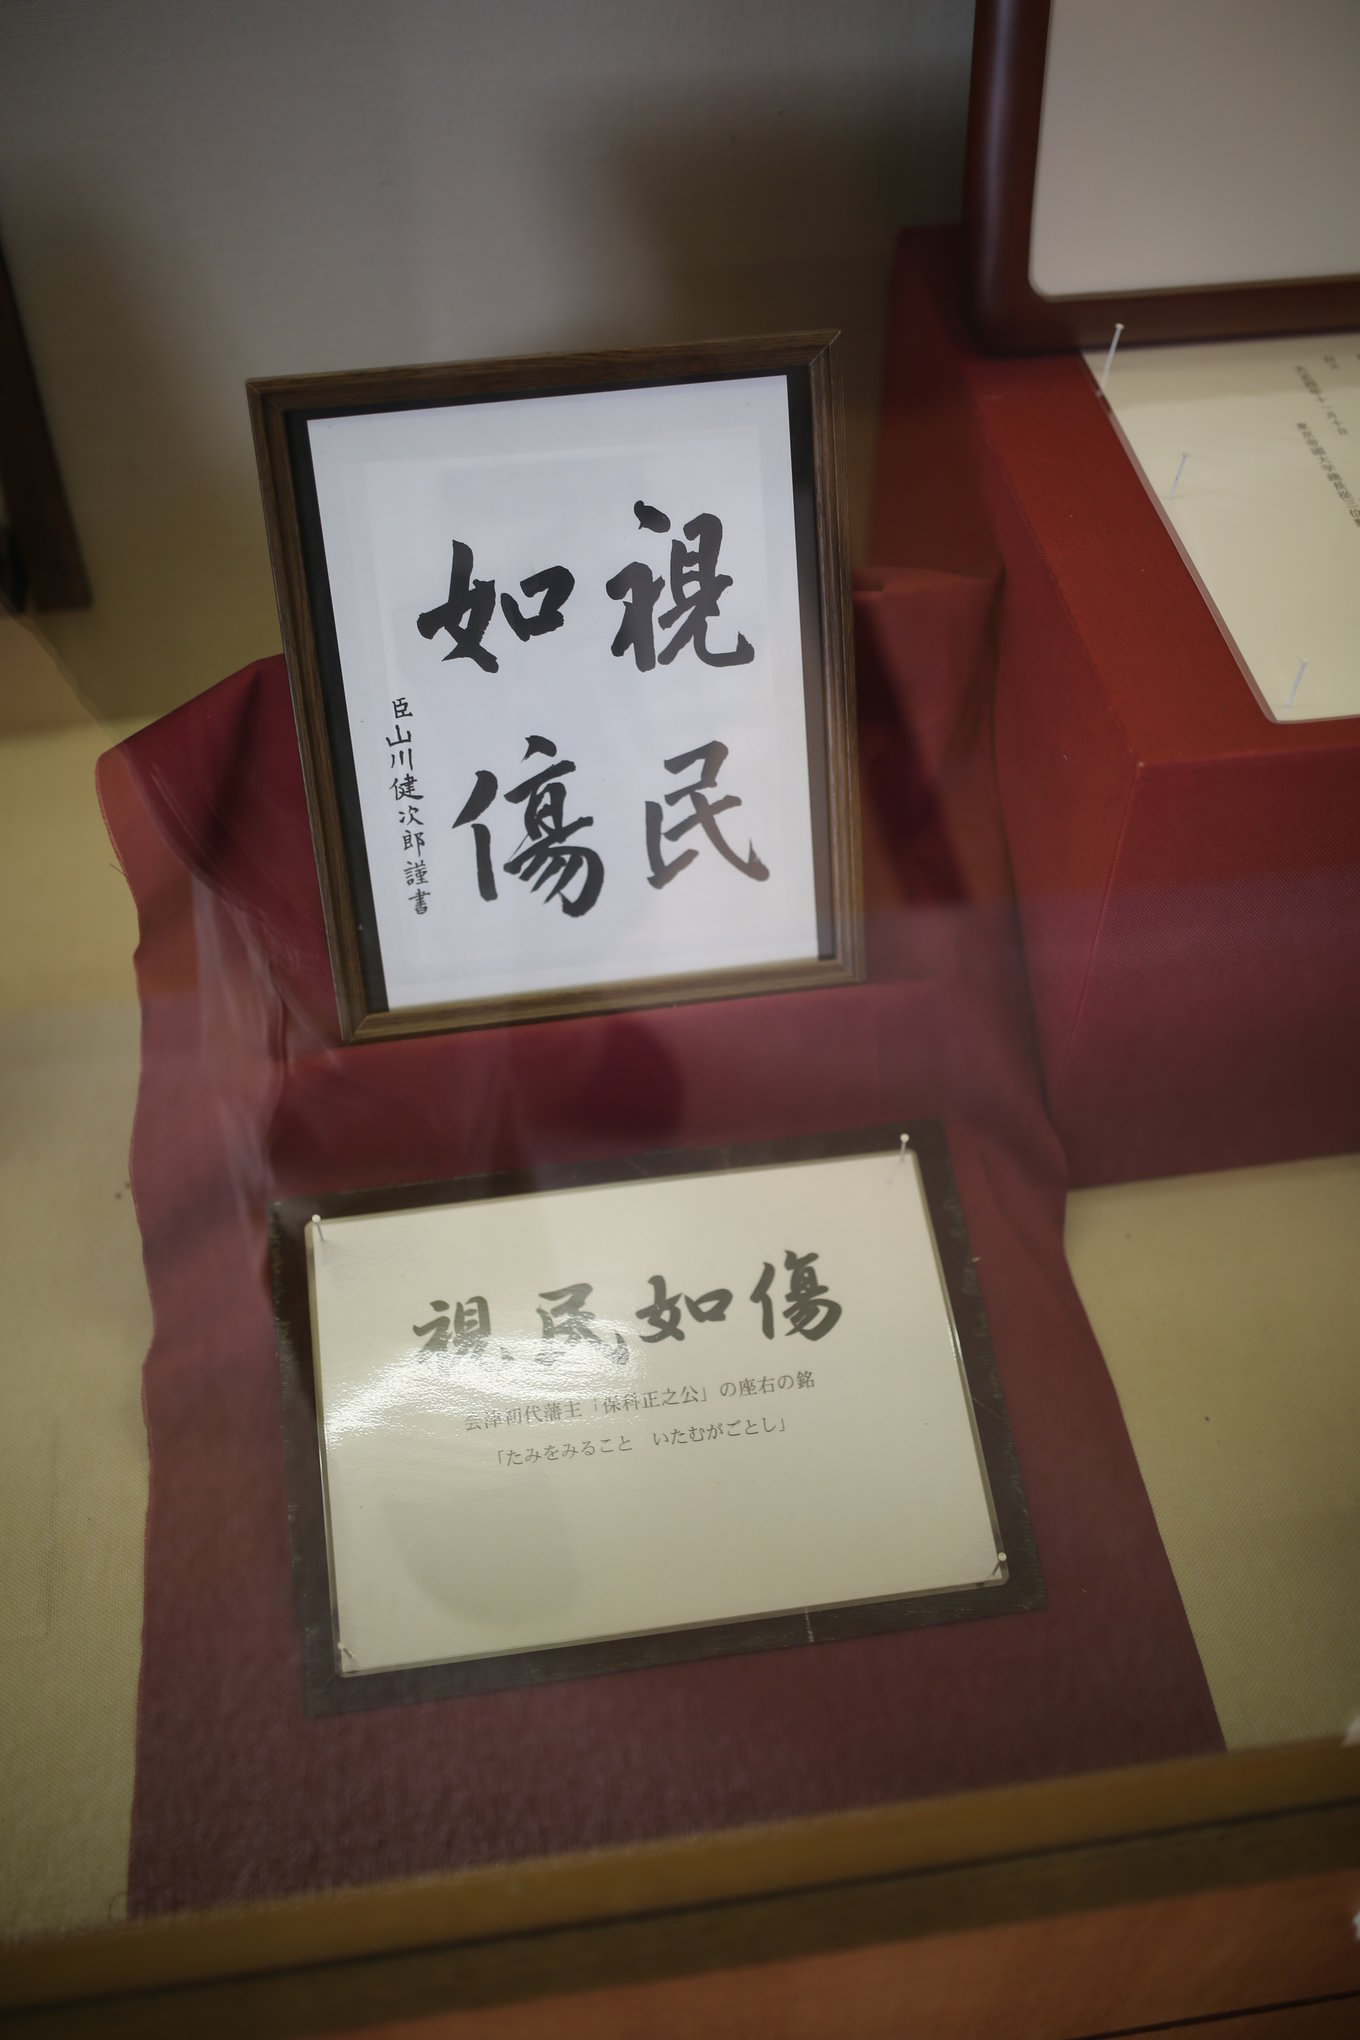 視民
如傷
臣山川健次郎謹書
視民如傷
会津初代藩主「保科正之公」の座右の銘
「たみをみること　いたむがごとし」